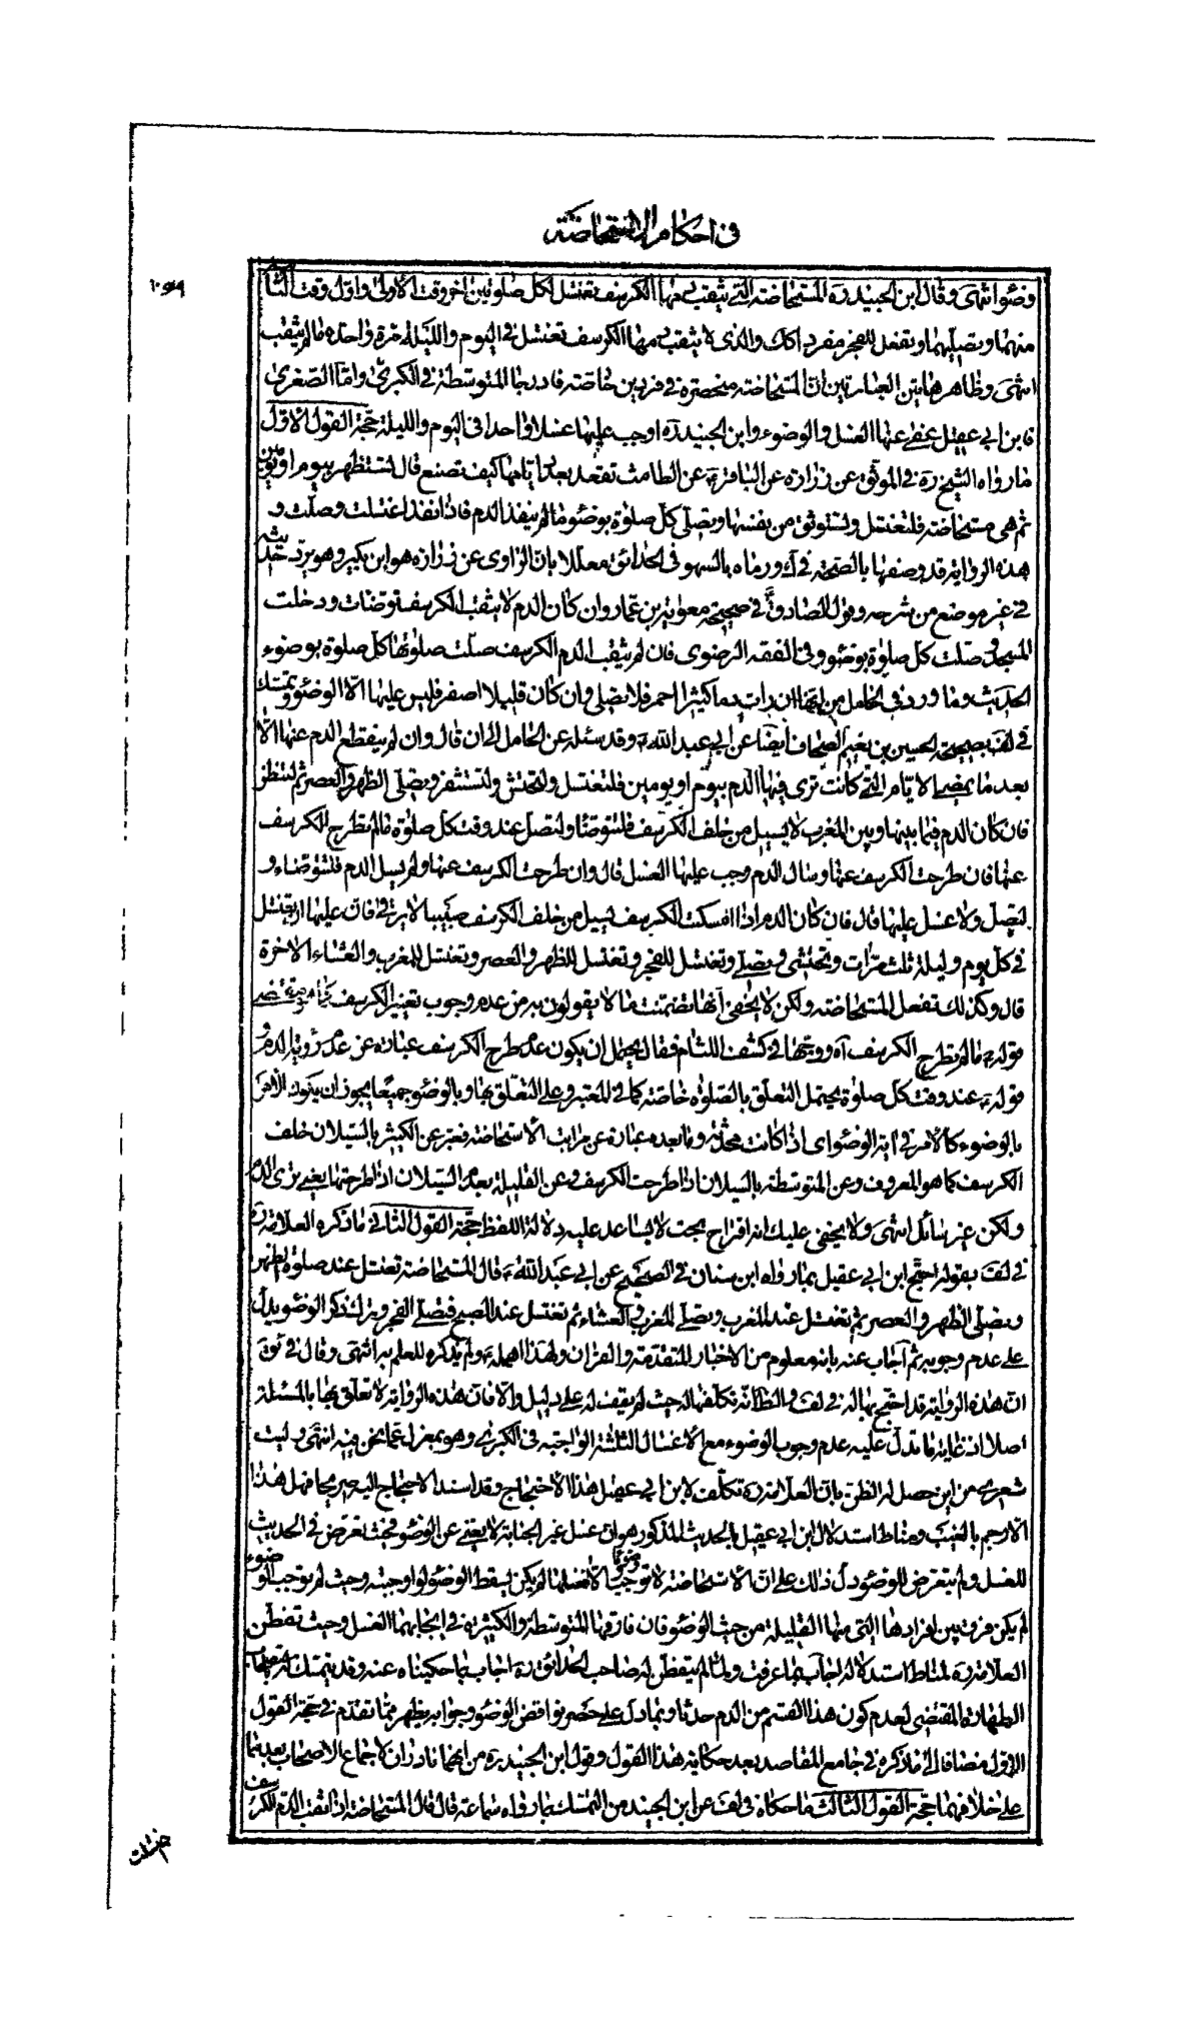 في احكام الاستحاضة
وضوء انتهى وقال ابن الجنيد ره المستحاضة التي يثقب دمها الكرسف تغتسل لكل صلوتين اخر وقت الأولى واول وقت الثانية
منهما وتصليهما وتفعل للفجر مفردا كك والذى لا يثقب دمها الكرسف تغتسل في اليوم والليلة مرة واحدة ما لم يثقب
انتهى وظاهر هاتين العبارتين ان المستحاضة منحصرة في ضربين خاصة فادرجا المتوسطة في الكبرى واما الصغرى
فابن ابي عقيل نفى عنها الغسل والوضوء وابن الجنيد ره اوجب عليها غسلا واحدا في اليوم والليلة حجة القول الاول
ما رواه الشيخ ره في الموثق عن زرارة عن الباقر ع عن الطامث تقعد بعدد ايامها كيف تصنع قال تستظهر بيوم او يومين
ثم هي مستحاضة فلتغتسل ولتستوثق من نفسها وتصلى كل صلوة بوضوء ما لم ينفذ الدم فاذا نفذ اغتسلت وصلت و
هذه الرواية قد وصفها بالصحة في ك ورماه بالسهو في الحدائق معللا بان الراوى عن زرارة هو ابن بكير وهو يرد حديثه
في غير موضع من شرحه وقول الصادق ع في صحيحة معوية بن عمار وان كان الدم لا يثقب الكرسف توضأت ودخلت
المسجد وصلت كل صلوة بوضوء وفى الفقه الرضوى فان لم يثقب الدم الكرسف صلت صلوتها كل صلوة بوضوء
الحديث وما ورد في الحامل من انها ان رات دما كثيرا احمر فلا تصلى وان كان قليلا اصفر فليس عليها الا الوضوء وتمسك
في لف بصحيحة الحسين بن نعيم الصحاف ايضا عن ابي عبد الله ع وقد سئله عن الحامل الى ان قال وان لم ينقطع الدم عنها الا
بعد ما يمضى الايام التي كانت ترى فيها الدم بيوم او يومين فلتغتسل ولتحتش ولتستثفر وتصلى الظهر والعصر ثم لتنظر
فان كان الدم فيما بينها وبين المغرب لا يسيل من خلف الكرسف فلتتوضأ ولتصل عند وقت كل صلوة ما لم تطرح الكرسف
عنها فان طرحت الكرسف عنها وسال الدم وجب عليها الغسل قال وان طرحت الكرسف عنها ولم يسل الدم فلتتوضاء و
لتصل ولا غسل عليها قال فان كان الدم اذا امسكت الكرسف يسيل من خلف الكرسف صبيبا لا يرقى فان عليها ان تغتسل
في كل يوم وليلة ثلث مرات وتحتشى وتصلى وتغتسل للفجر وتغتسل للظهر والعصر وتغتسل للمغرب والعشاء الاخرة
قال وكذلك تفعل المستحاضة ولكن لا يخفى انها تضمنت ما لا يقولون به من عدم وجوب تغيير الكرسف
قوله ع ما لم تطرح الكرسف آه ووجهها في كشف اللثام فقال يحتمل ان يكون عدم طرح الكرسف عبارة عن عدم رؤية الدم و
قوله ع عند وقت كل صلوة يحتمل التعلق بالصلوة خاصة كما في المعتبر وعلى التعلق بها وبالوضوء جميعا يجوز ان يكون الامر
بالوضوء كالأمر في اية الوضوء اى اذا كانت محدثة وما بعده عبارة عن مراتب الأستحاضة فعبر عن الكثير بالسيلان خلف
الكرسف كما هو المعروف وعن المتوسطة بالسيلان اذا طرحت الكرسف وعن القليلة بعدم السيلان اذا طرحتها يعنى ترى الدم
ولكن غير سائل انتهى ولا يخفى عليك انه اقتراح بحت لا يساعد عليه دلالة اللفظ حجة القول الثانى ما ذكره العلامة ره
في لف بقوله احتج ابن ابي عقيل بما رواه ابن سنان في الصحيح عن ابي عبد الله ع قال المستحاضة تغتسل عند صلوة الظهر
وتصلى الظهر والعصر ثم تغتسل عند المغرب وتصلى المغرب والعشاء ثم تغتسل عند الصبح فتصلى الفجر وترك ذكر الوضوء يدل
على عدم وجوبه ثم اجاب عنه بانه معلوم من الاخبار المتقدمة والقران ولهذا اهمله ع ولم يذكره للعلم به انتهى وقال في ئق
ان هذه الرواية قد احتج بها له في لف والظاهر انه تكلفها له حيث لم يقف له على دليل والا فان هذه الرواية لا تعلق لها بالمسئلة
اصلا اذ غاية ما تدل عليه عدم وجوب الوضوء مع الاغسال الثلثة الواجبة في الكبرى وهو بمعزل عما نحن فيه انتهى وليت
شعرى من اين حصل له الظن بان العلامة ره تكلف لابن ابي عقيل هذا الاحتجاج وقد اسند الاحتجاج اليه صريحا فهل هذا
الا رجم بالغيب ومناط استدلال ابن ابي عقيل بالحديث المذكور هو ان غسل غير الجنابة لا يغنى عن الوضوء فحيث تعرض في الحديث
للغسل ولم يتعرض للوضوء دل ذلك على ان الاستحاضة لا توجب وضوء الا غسلا لم يكن ليسقط الوضوء لو اوجبته وحيث لم توجب الوضوء
لم يكن فرق بين افرادها التى منها القليلة من حيث الوضوء فان فارقها المتوسطة والكثيرة في ايجابهما الغسل وحيث تفطن
العلامة ره لمناط استدلاله اجاب بما عرفت ولما لم يتفطن له صاحب الحدائق ره اجاب بما حكيناه عنه وقد يتمسك له
الطهارة المقتضى لعدم كون هذا القسم من الدم حدثا وبما دل على حصر نواقض الوضوء وجوابه يظهر مما تقدم في حجة القول
الاول مضافا الى ما ذكره في جامع المقاصد بعد حكاية هذا القول وقول ابن الجنيد ره من انهما نادران لاجماع الاصحاب بعدهما
على خلافهما حجة القول الثالث ما حكاه في لف عن ابن الجنيد من التمسك بما رواه سماعة قال قال المستحاضة اذا ثقب الدم الكرسف